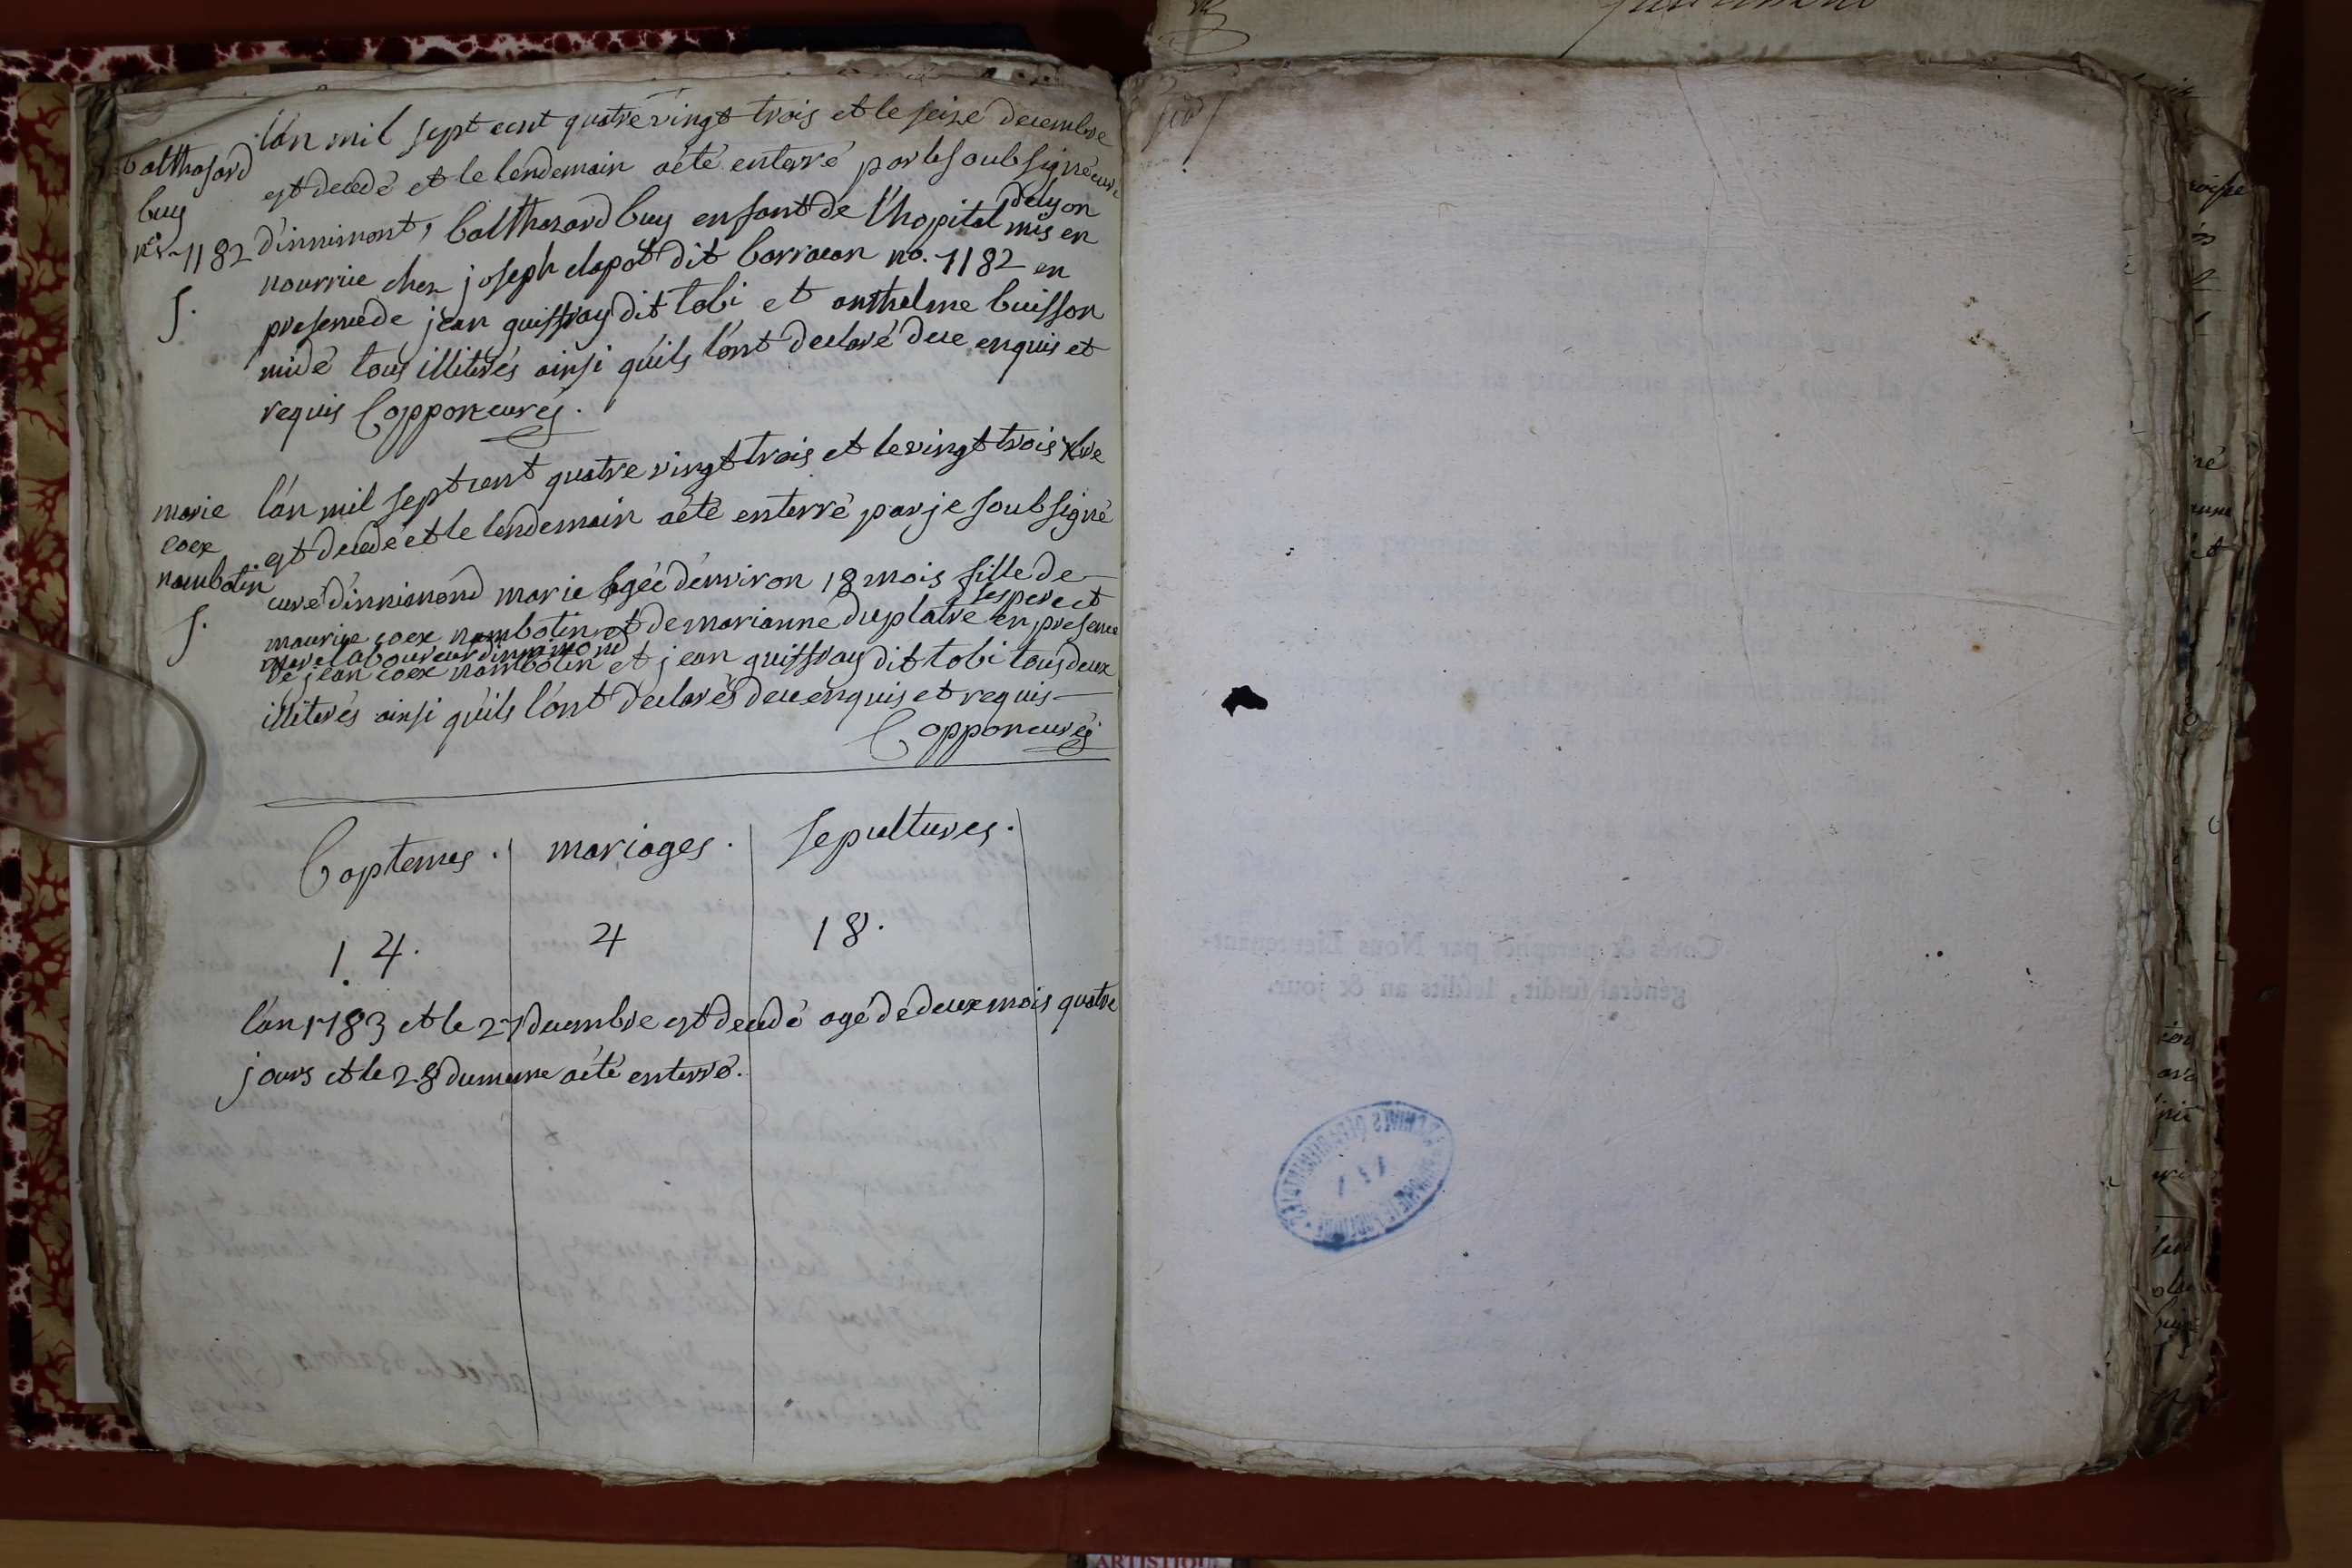 balthasard
buy
no. 1182
S.
l'an mil sept cent quatre vingt trois et le seize decembre
est decedé et le lendemain a été enterré par le soubsigné curé
d'innimont, balthazard buy enfant de l'hopital de lyon mis en
nourrice chez joseph clapot dit barracan no. 1182 en
presence de jean guiffray dit tobi et anthelme buisson
midé tous illiterés ainsi qu'ils l'ont declaré de ce enquis et
requis Cappon curé.
marie
coex
nambotin
S.
l'an mil sept cent quatre vingt trois et le vingt trois xbre
est decedé et le lendemain a été enterré par je soubsigné
curé d'innimond marie agée d'environ 18 mois fille de
maurice coex nambotin et de marianne duplatre ses pere et en presence
mere laboureur d'innimond
de jean coex nambotin et jean guiffray dit tobi tous deux
illiterés ainsi qu'ils l'ont declarés de ce enquis et requis
Cappon curé
baptemes. mariages. sepultures.
14. 4 18.
l'an 1783 et le 27 decembre est decedé agé de deux mois quatre
jours et le 28 du meme a été enterré.
Cotés & paraphés par Nous Lieutenant-
général susdit, lesdits an & jour.
ARTISTIQUE